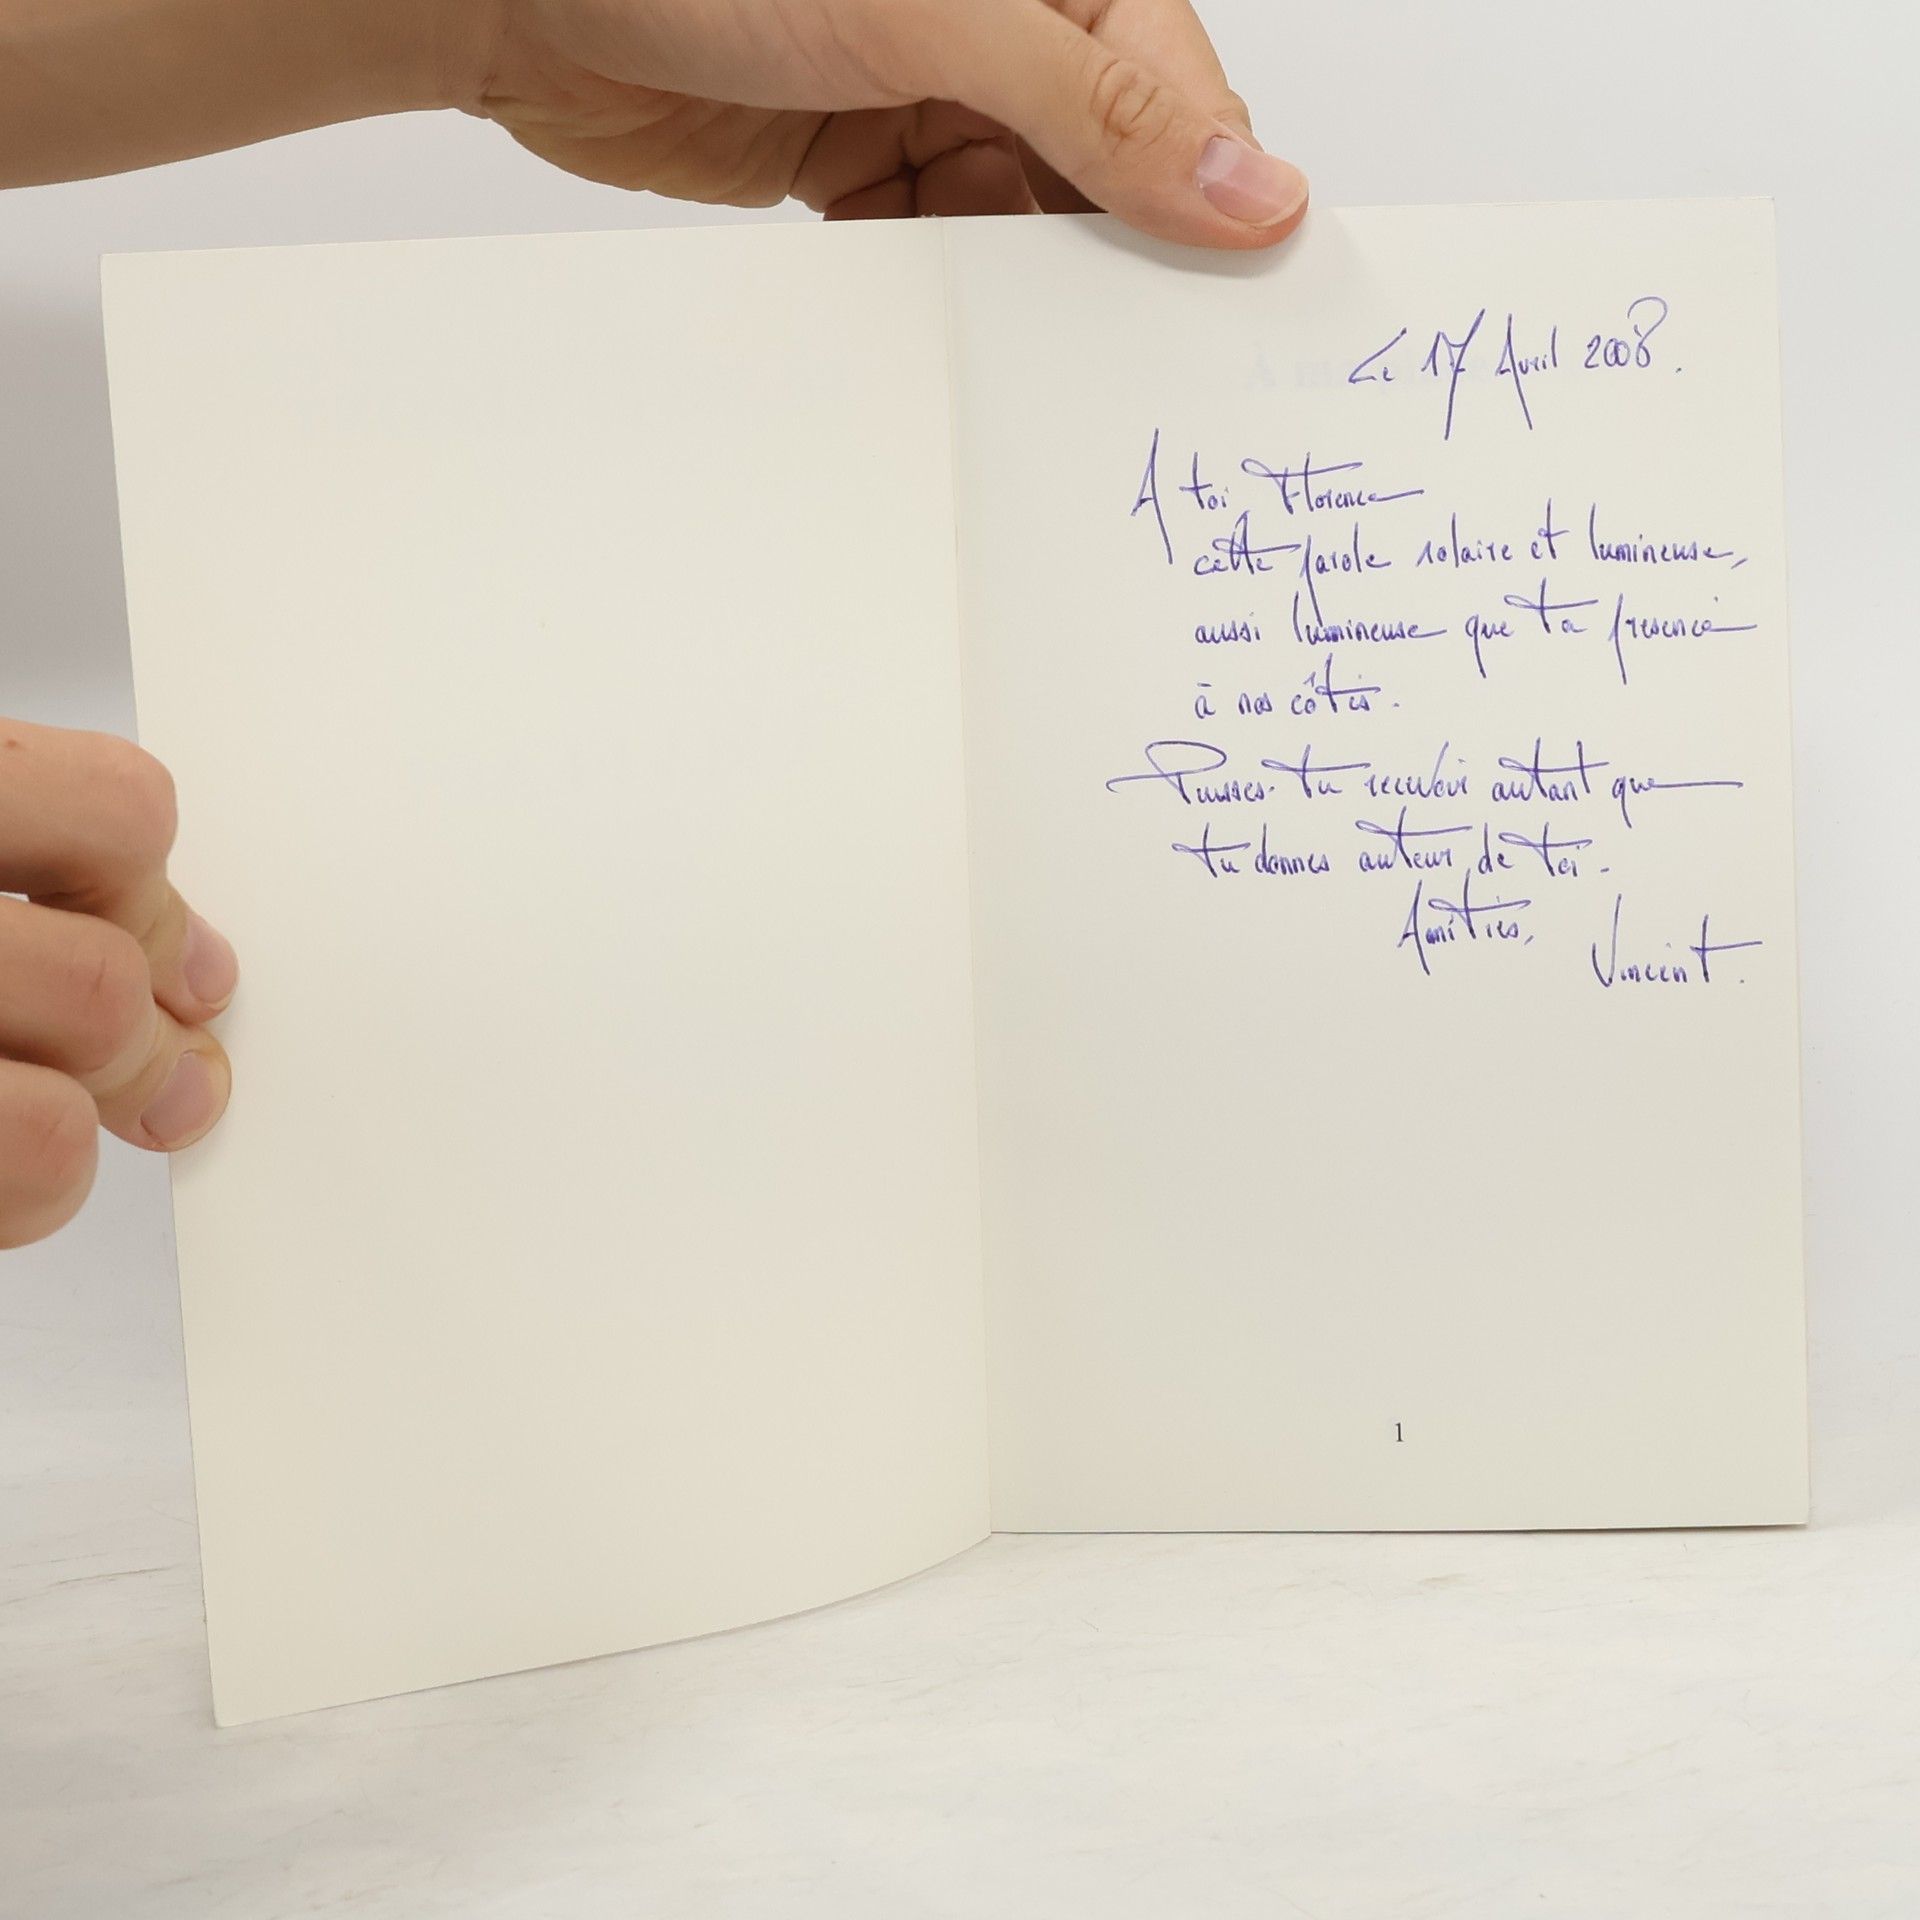 Le 17 Avril 2008.
A toi Florence
cette parole solaire et lumineuse,
aussi lumineuse que ta présence
à nos côtés.
Puisses-tu recevoir autant que
tu donnes autour de toi.
Amitiés,
Vincent.
1